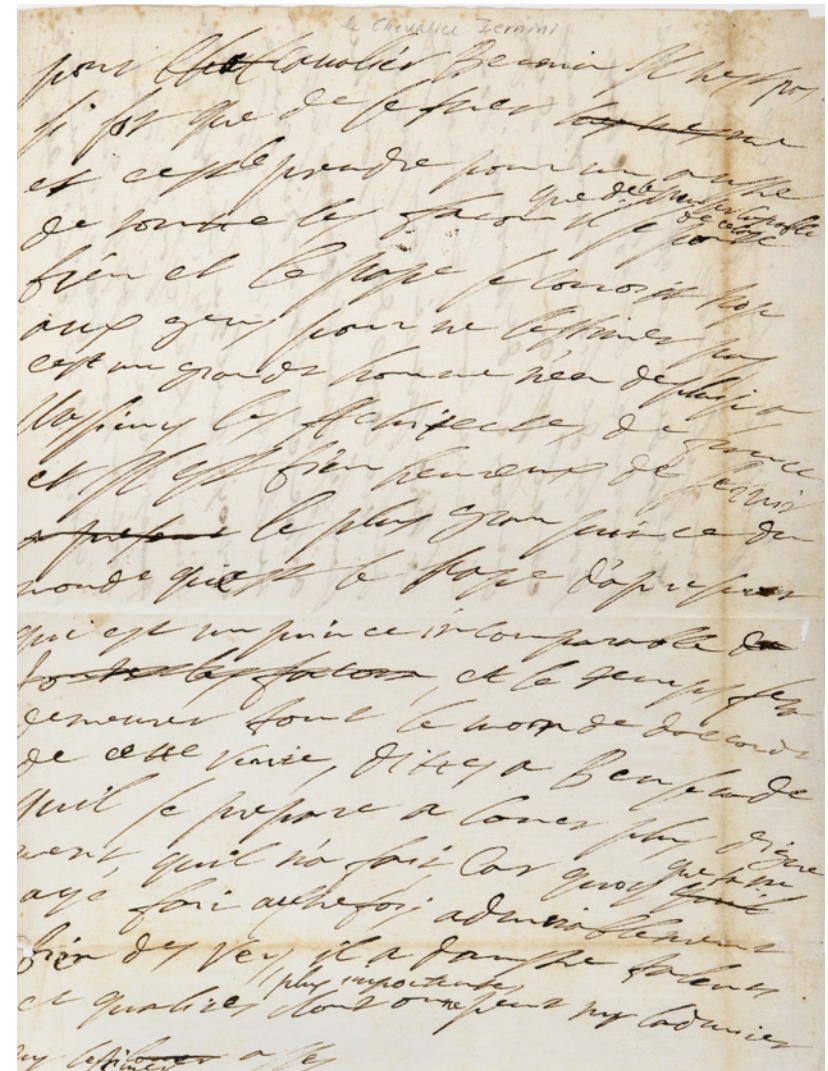 le Chevalier Bernini
pour le Cavalier Bernin il nest pas
si sot que de se fuer
et cest le prendre pour un autre
que de le
de toutte les facon il se porte
bien et le pape se connoist trop
aux gens pour ne lestimer pas
cest un grandt homme nen desplaise a
Messieurs les Architectes de france
et il est bien heureux de servir
a present le plus gran prince du
monde qui est le pape dapresent
qui est un prince incomparable de
touttes les facons, et le temps fera
demeurer tout le monde daccordt
de cette verite, dittes a Benserade
quil se prepare a louer plus digne
ment, quil na fait Car quoy que
aye fait autrefois admirablement
bien des vers il a dautre talens
plus importans
et qualites dont on ne peut ny ladmirer
ny lestimer asses